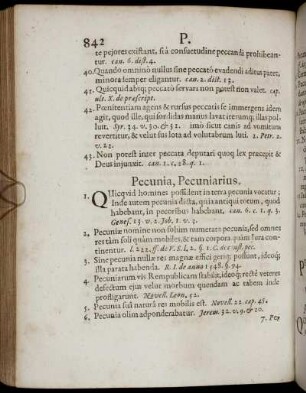 842 P.
te pejores existant, si à consuetudine peccandi prohibean-
tur. cau. 6. dist. 4.
40. Quando omnino nullus sine peccato evadendi aditus patet,
minora semper eligantur. cau. 2. dist. 13.
41. Quicquid absq; peccato servari non potest non valet. cap.
ult. X. de præscript.
42. Pœnitentiam agens & rursus peccatis se immergens idem
agit, quod ille, qui sordidas manus lavat iterumq; illas pol-
luit. Syr. 34. v. 30. & 31. imò sicut canis ad vomitum
revertitur, & velut sus lota ad volutabrum luti. 2. Petr. 2.
v. 22.
43. Non potest inter peccata deputari quod lex præcepit &
Deus injunxit. cau. 1. 18. q. 1.
Pecunia, Pecuniarius.
1. QUicqvid homines possident in terra pecunia vocatur;
Inde autem pecunia dicta, quia antiqui totum, quod
habebant, in pecoribus habebant. cau. 6. c. 1. q. 3.
Genes. 13 v. 2. Job. 1. v. 3.
2. Pecuniæ nomine non solùm numerata pecunia, sed omnes
res tàm soli quàm mobiles, & tam corpora quàm jura con-
tinentur. l. 222. ff. de V. S. l. 2. §. 1. C. de cust. pec.
3. Sine pecunia nullæ res magnæ effici geriq; possunt, ideoq;
illa parata habenda. R. I. de anno 1548. §. 94.
4. Pecuniarium vis Rempublicam stabilit, ideoq; recte veteres
defectum ejus velut morbum quendam ac tabem inde
profligarunt. Novell. Leon. 52.
5. Pecunia suâ naturâ res mobilis est. Novell. 22. cap. 45.
6. Pecunia olim adponderabatur. Jerem. 32. v. 9. & 10.
7. Pec